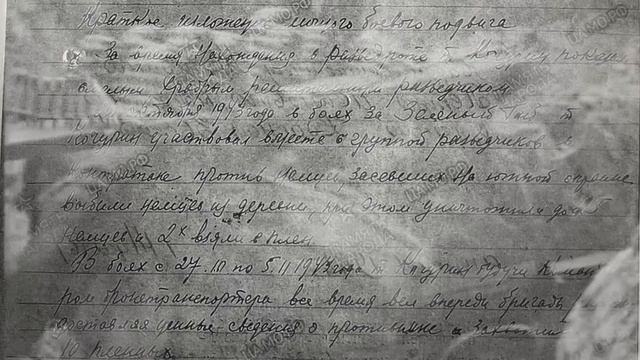 Краткое изложение личного боевого подвига
За время нахождения в разведроте т. Кочурин показал
смелым храбрым разведчиком
1943 года в боях за Зеленый Гай т.
Кочурин участвовал вместе с группой разведчиков в
контратаке против немцев, засевших на южной окраине
выбили немцев из деревни, при этом уничтожили до
немцев и 2х взяли в плен
В боях с 27.10 по 5.11 1943 года т. Кочурин будучи команди
ром бронетранспортера все время вел впереди бригады
доставляя ценные сведения о противнике и захватил
10 пленных